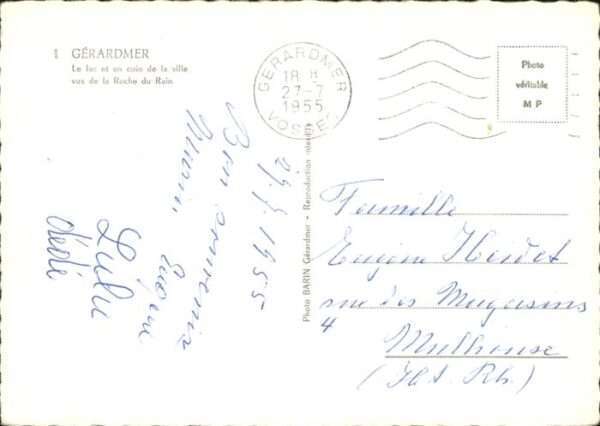 1 GÉRARDMER
Le lac et un coin de la ville
vus de la Roche du Rain
GERARDMER
18 H
27-7
1955
VOSGES
Photo
véritable
M P
Photo BARIN Gérardmer - Reproduction interdite
27.7.1955
Bon souvenir
Eugène
Lulu
dédé
Famille
Eugène
rue des Magasins
4
Mulhouse
(Ht. Rh.)